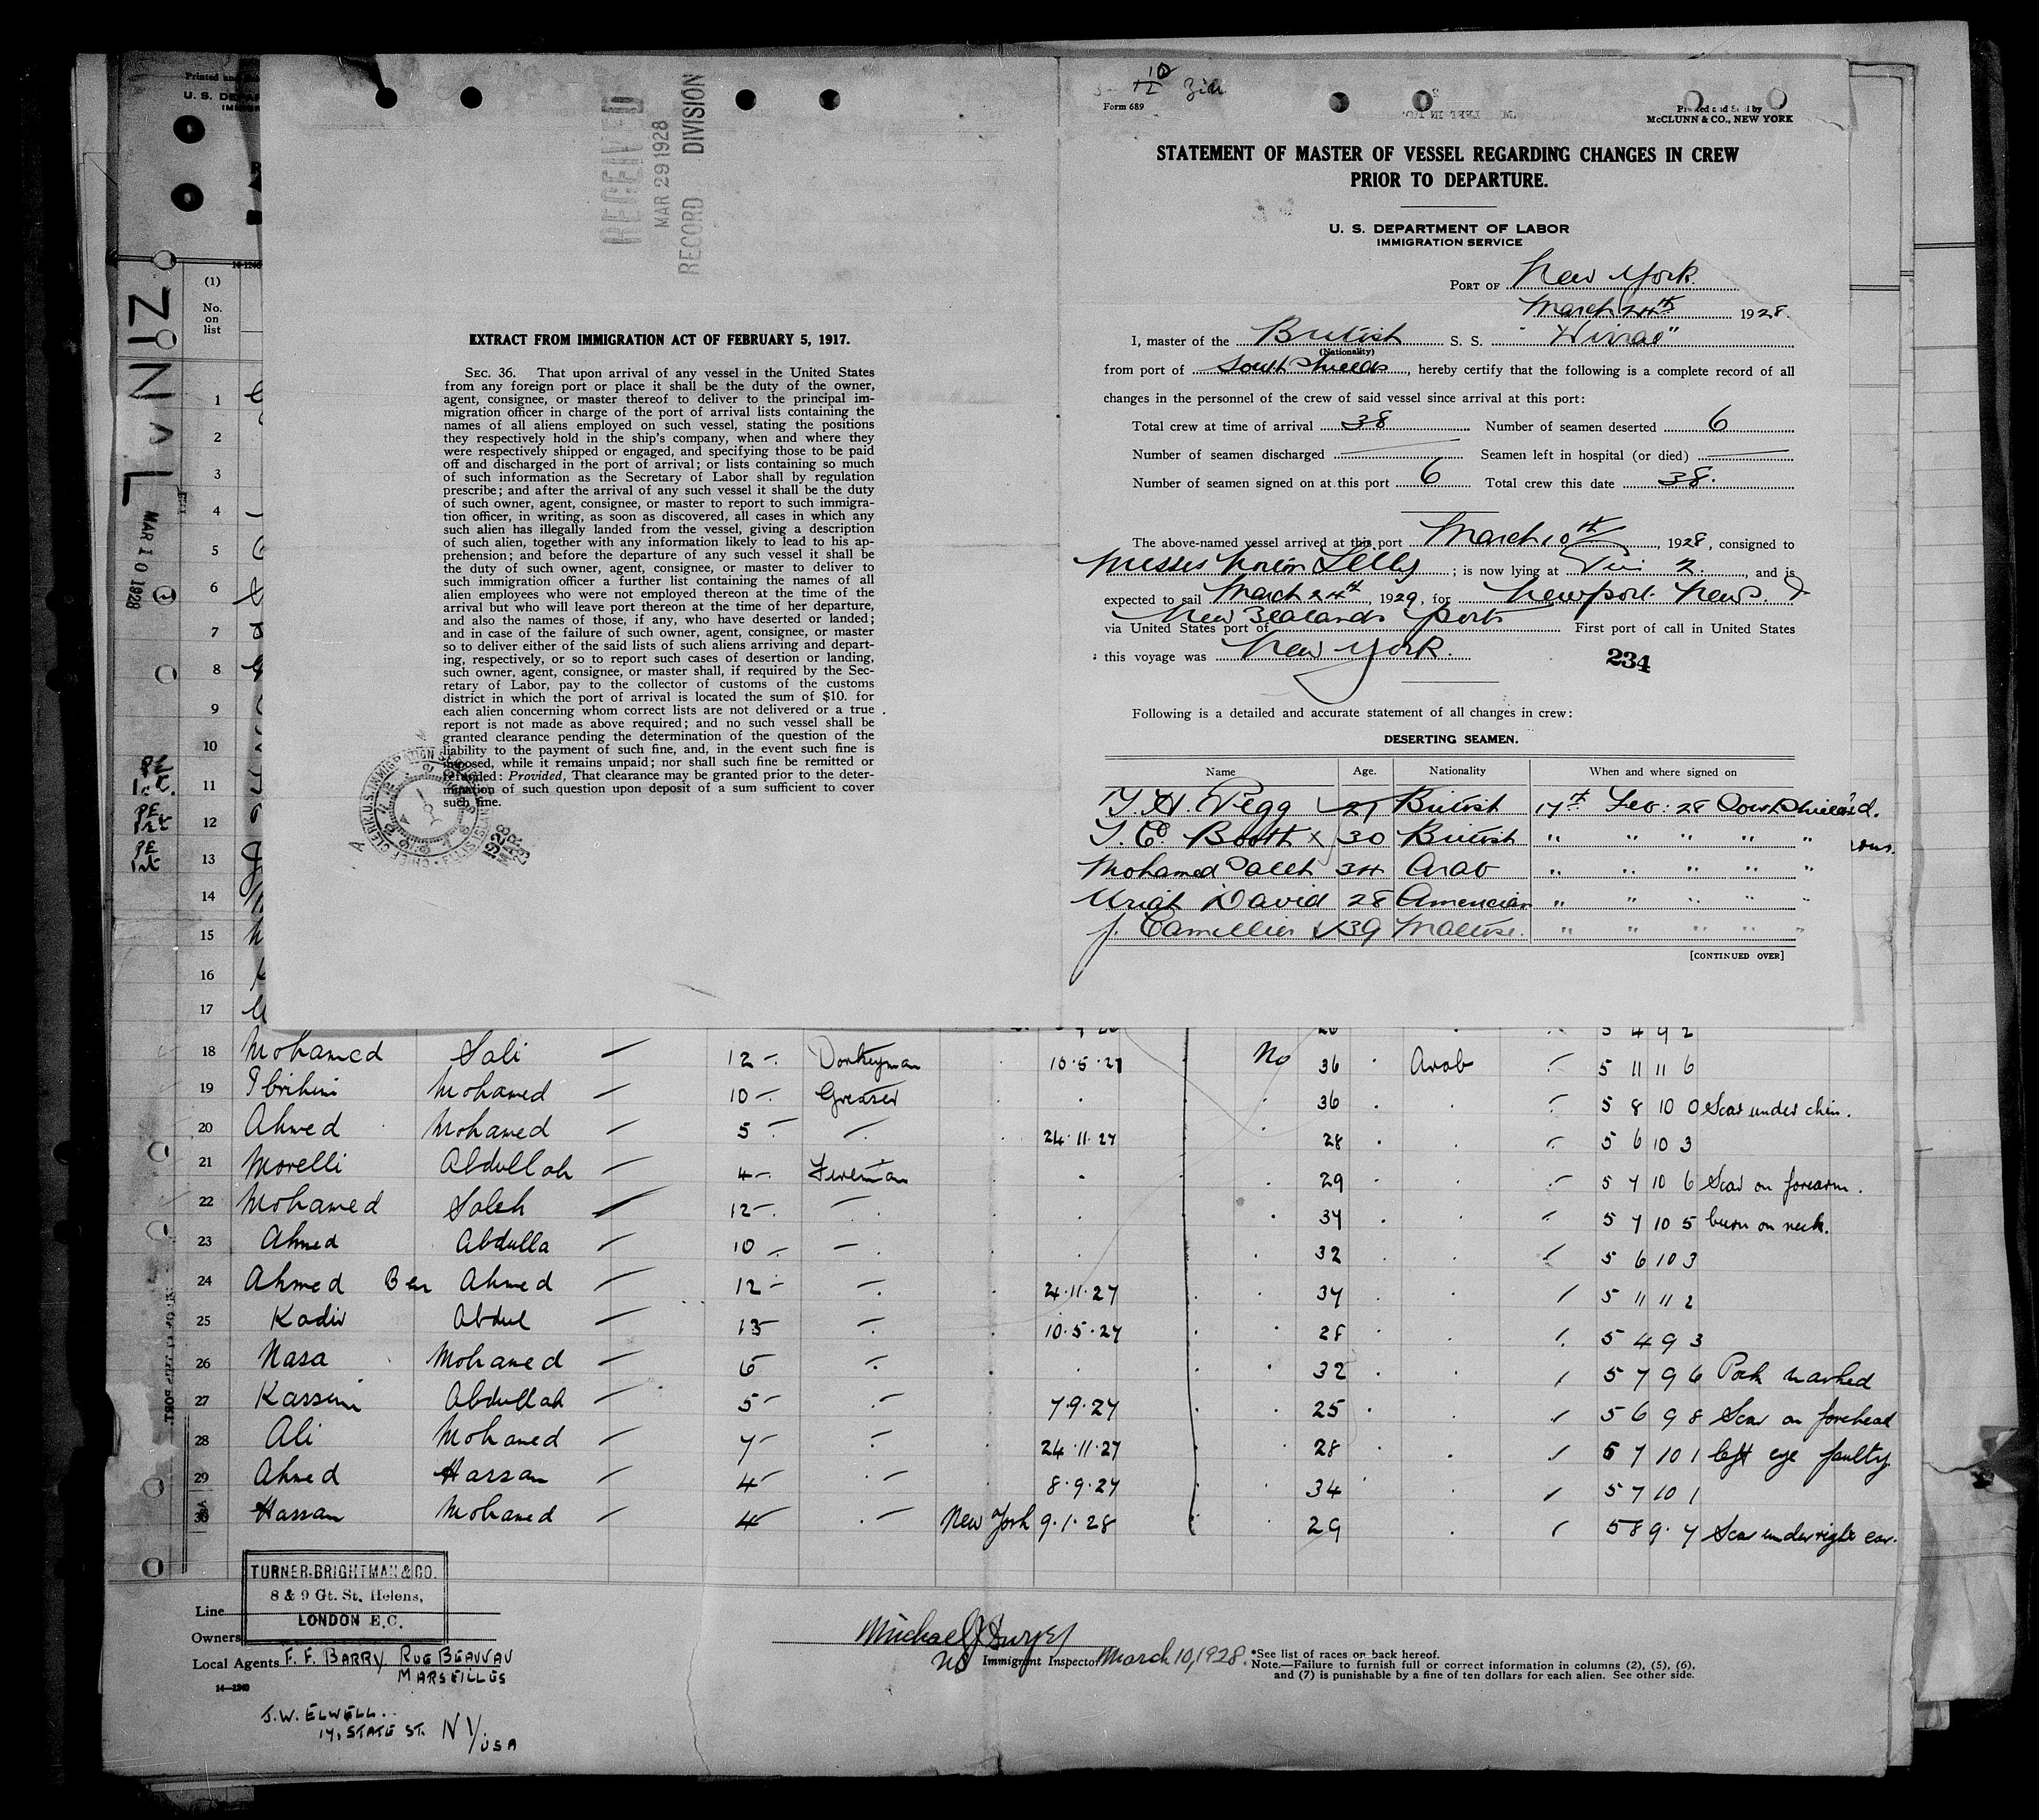 Form 689
McCLUNN & CO., NEW YORK
RECEIVED
MAR 29 1928
RECORD DIVISION
STATEMENT OF MASTER OF VESSEL REGARDING CHANGES IN CREW
PRIOR TO DEPARTURE.
U. S. DEPARTMENT OF LABOR
IMMIGRATION SERVICE
PORT OF New York.
March 24th 1928.
I, master of the British S. S. "Wirral"
(Nationality)
from port of South Shields, hereby certify that the following is a complete record of all
changes in the personnel of the crew of said vessel since arrival at this port:
Total crew at time of arrival 38 Number of seamen deserted 6
Number of seamen discharged — Seamen left in hospital (or died) —
Number of seamen signed on at this port 6 Total crew this date 38.
The above-named vessel arrived at this port March 10th, 1928, consigned to
Messrs ; is now lying at 2., and is
expected to sail March 24th, 1929, for Newport News. &
New Zealands Ports
via United States port of First port of call in United States
this voyage was New York.
234
Following is a detailed and accurate statement of all changes in crew:
DESERTING SEAMEN.
Name Age. Nationality When and where signed on
Pegg 21 British 17th Feb: 28 South Shields.
Booth x 30 British " " " " "
Mohamed Saleh 34 Arab " " " " "
Uriah David 28 American " " " " "
J. Camellier 39 Maltese. " " " " "
[CONTINUED OVER]
EXTRACT FROM IMMIGRATION ACT OF FEBRUARY 5, 1917.
SEC. 36. That upon arrival of any vessel in the United States
from any foreign port or place it shall be the duty of the owner,
agent, consignee, or master thereof to deliver to the principal im-
migration officer in charge of the port of arrival lists containing the
names of all aliens employed on such vessel, stating the positions
they respectively hold in the ship's company, when and where they
were respectively shipped or engaged, and specifying those to be paid
off and discharged in the port of arrival; or lists containing so much
of such information as the Secretary of Labor shall by regulation
prescribe; and after the arrival of any such vessel it shall be the duty
of such owner, agent, consignee, or master to report to such immigra-
tion officer, in writing, as soon as discovered, all cases in which any
such alien has illegally landed from the vessel, giving a description
of such alien, together with any information likely to lead to his ap-
prehension; and before the departure of any such vessel it shall be
the duty of such owner, agent, consignee, or master to deliver to
such immigration officer a further list containing the names of all
alien employees who were not employed thereon at the time of the
arrival but who will leave port thereon at the time of her departure,
and also the names of those, if any, who have deserted or landed;
and in case of the failure of such owner, agent, consignee, or master
so to deliver either of the said lists of such aliens arriving and depart-
ing, respectively, or so to report such cases of desertion or landing,
such owner, agent, consignee, or master shall, if required by the Sec-
retary of Labor, pay to the collector of customs of the customs
district in which the port of arrival is located the sum of $10. for
each alien concerning whom correct lists are not delivered or a true
report is not made as above required; and no such vessel shall be
granted clearance pending the determination of the question of the
liability to the payment of such fine, and, in the event such fine is
imposed, while it remains unpaid; nor shall such fine be remitted or
refunded: Provided, That clearance may be granted prior to the deter-
mination of such question upon deposit of a sum sufficient to cover
such fine.
MAR 10 1928
(1)
No.
on
list
1
2
3
4
5
6
7
8
9
10
11
12
13
14
15
16
17
18 Mohamed Sali — 12 - Donkeyman 10.5.27 No 36 Arab 5 11 11 6
19 Ibrihim Mohamed — 10 - Greaser 36 5 8 10 0 Scar under chin.
20 Ahmed Mohamed — 5 - 24.11.27 28 5 6 10 3
21 Morelli Abdullah — 4 - Fireman 29 5 7 10 6 Scar on forearm.
22 Mohamed Saleh — 12 - 34 5 7 10 5 burn on neck.
23 Ahmed Abdulla — 10 - 32 5 6 10 3
24 Ahmed Ben Ahmed — 12 - 24.11.27 34 5 11 11 2
25 Kadir Abdul — 13 10.5.27 28 5 4 9 3
26 Nasa Mohamed — 6 32 5 7 9 6 Pock marked
27 Kassim Abdullah — 5 - 7.9.27 25 5 6 9 8 Scar on forehead
28 Ali Mohamed — 7 - 24.11.27 28 5 7 10 1 left eye faulty
29 Ahmed Hassan — 4 - 8.9.27 34 5 7 10 1
30 Hassan Mohamed — 4 New York 9.1.28 29 5 8 9 7 Scar under right ear.
Line
Owners
TURNER. BRIGHTMAN & CO.
8 & 9 Gt. St. Helens,
LONDON E.C.
Local Agents F. F. BARRY RUE BEAUVAU
MARSEILLES
14—1240
J. W. ELWELL..
17, STATE ST. NY/USA
Immigrant Inspector March 10, 1928.
*See list of races on back hereof.
Note.—Failure to furnish full or correct information in columns (2), (5), (6),
and (7) is punishable by a fine of ten dollars for each alien. See other side.